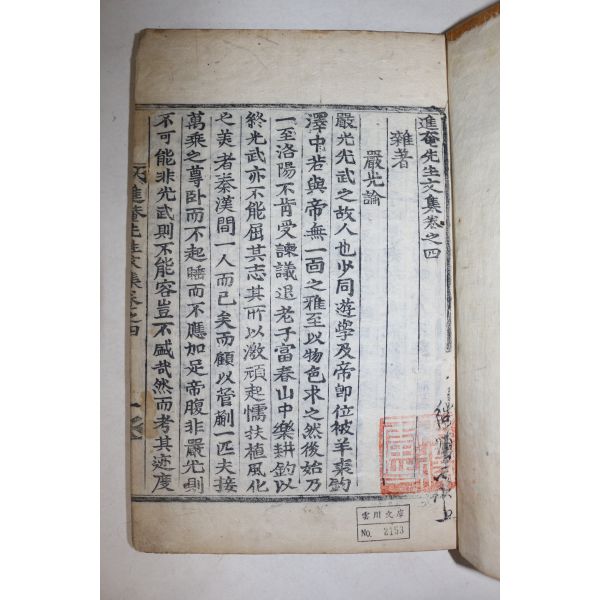 進菴先生文集卷之四
雜著
嚴光論
嚴光光武之故人也少同遊學及帝卽位被羊裘釣
澤中若與帝無一面之雅至以物色求之然後始乃
一至洛陽不肯受諫議退老于富春山中樂耕釣以
終光武亦不能屈其志其所以激頑起懦扶植風化
之美者秦漢間一人而已矣而顧以菅蒯一匹夫接
萬乘之尊卧而不起睡而不應加足帝腹非嚴光則
不可能非光武則不能容豈不盛哉然而考其迹度
進菴先生文集卷之四
一
雲川文庫
No. 2153